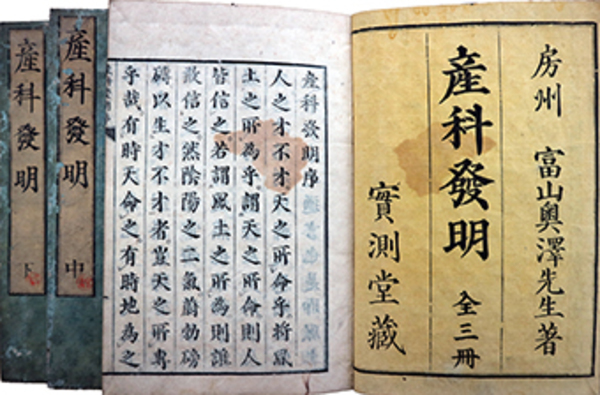 房州 富山奧澤先生著
產科發明 全三冊
實測堂藏
產科發明序
人之才不才天之所命乎将風
土之所為乎謂天之所命則人
皆信之若謂風土之所為則誰
敢信之然陰陽之二氣蔚勃磅
礴以生才不才者豈天之所專
乎哉有時天命之有時地為之
產科發明 中
產科發明 下